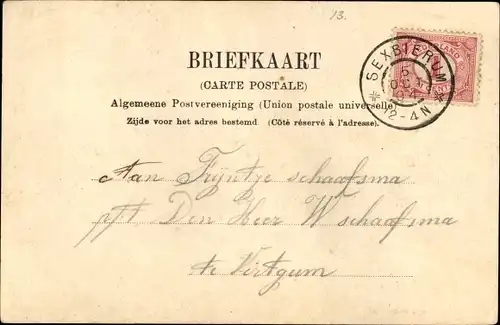 13.
BRIEFKAART
(CARTE POSTALE)
Algemeene Postvereeniging (Union postale universelle)
Zijde voor het adres bestemd. (Côté réservé à l'adresse).
SEXBIERUM
5
12-4N
Aan Trijntje Schaafsma
p/t Den Heer W Schaafsma
te Virtgum